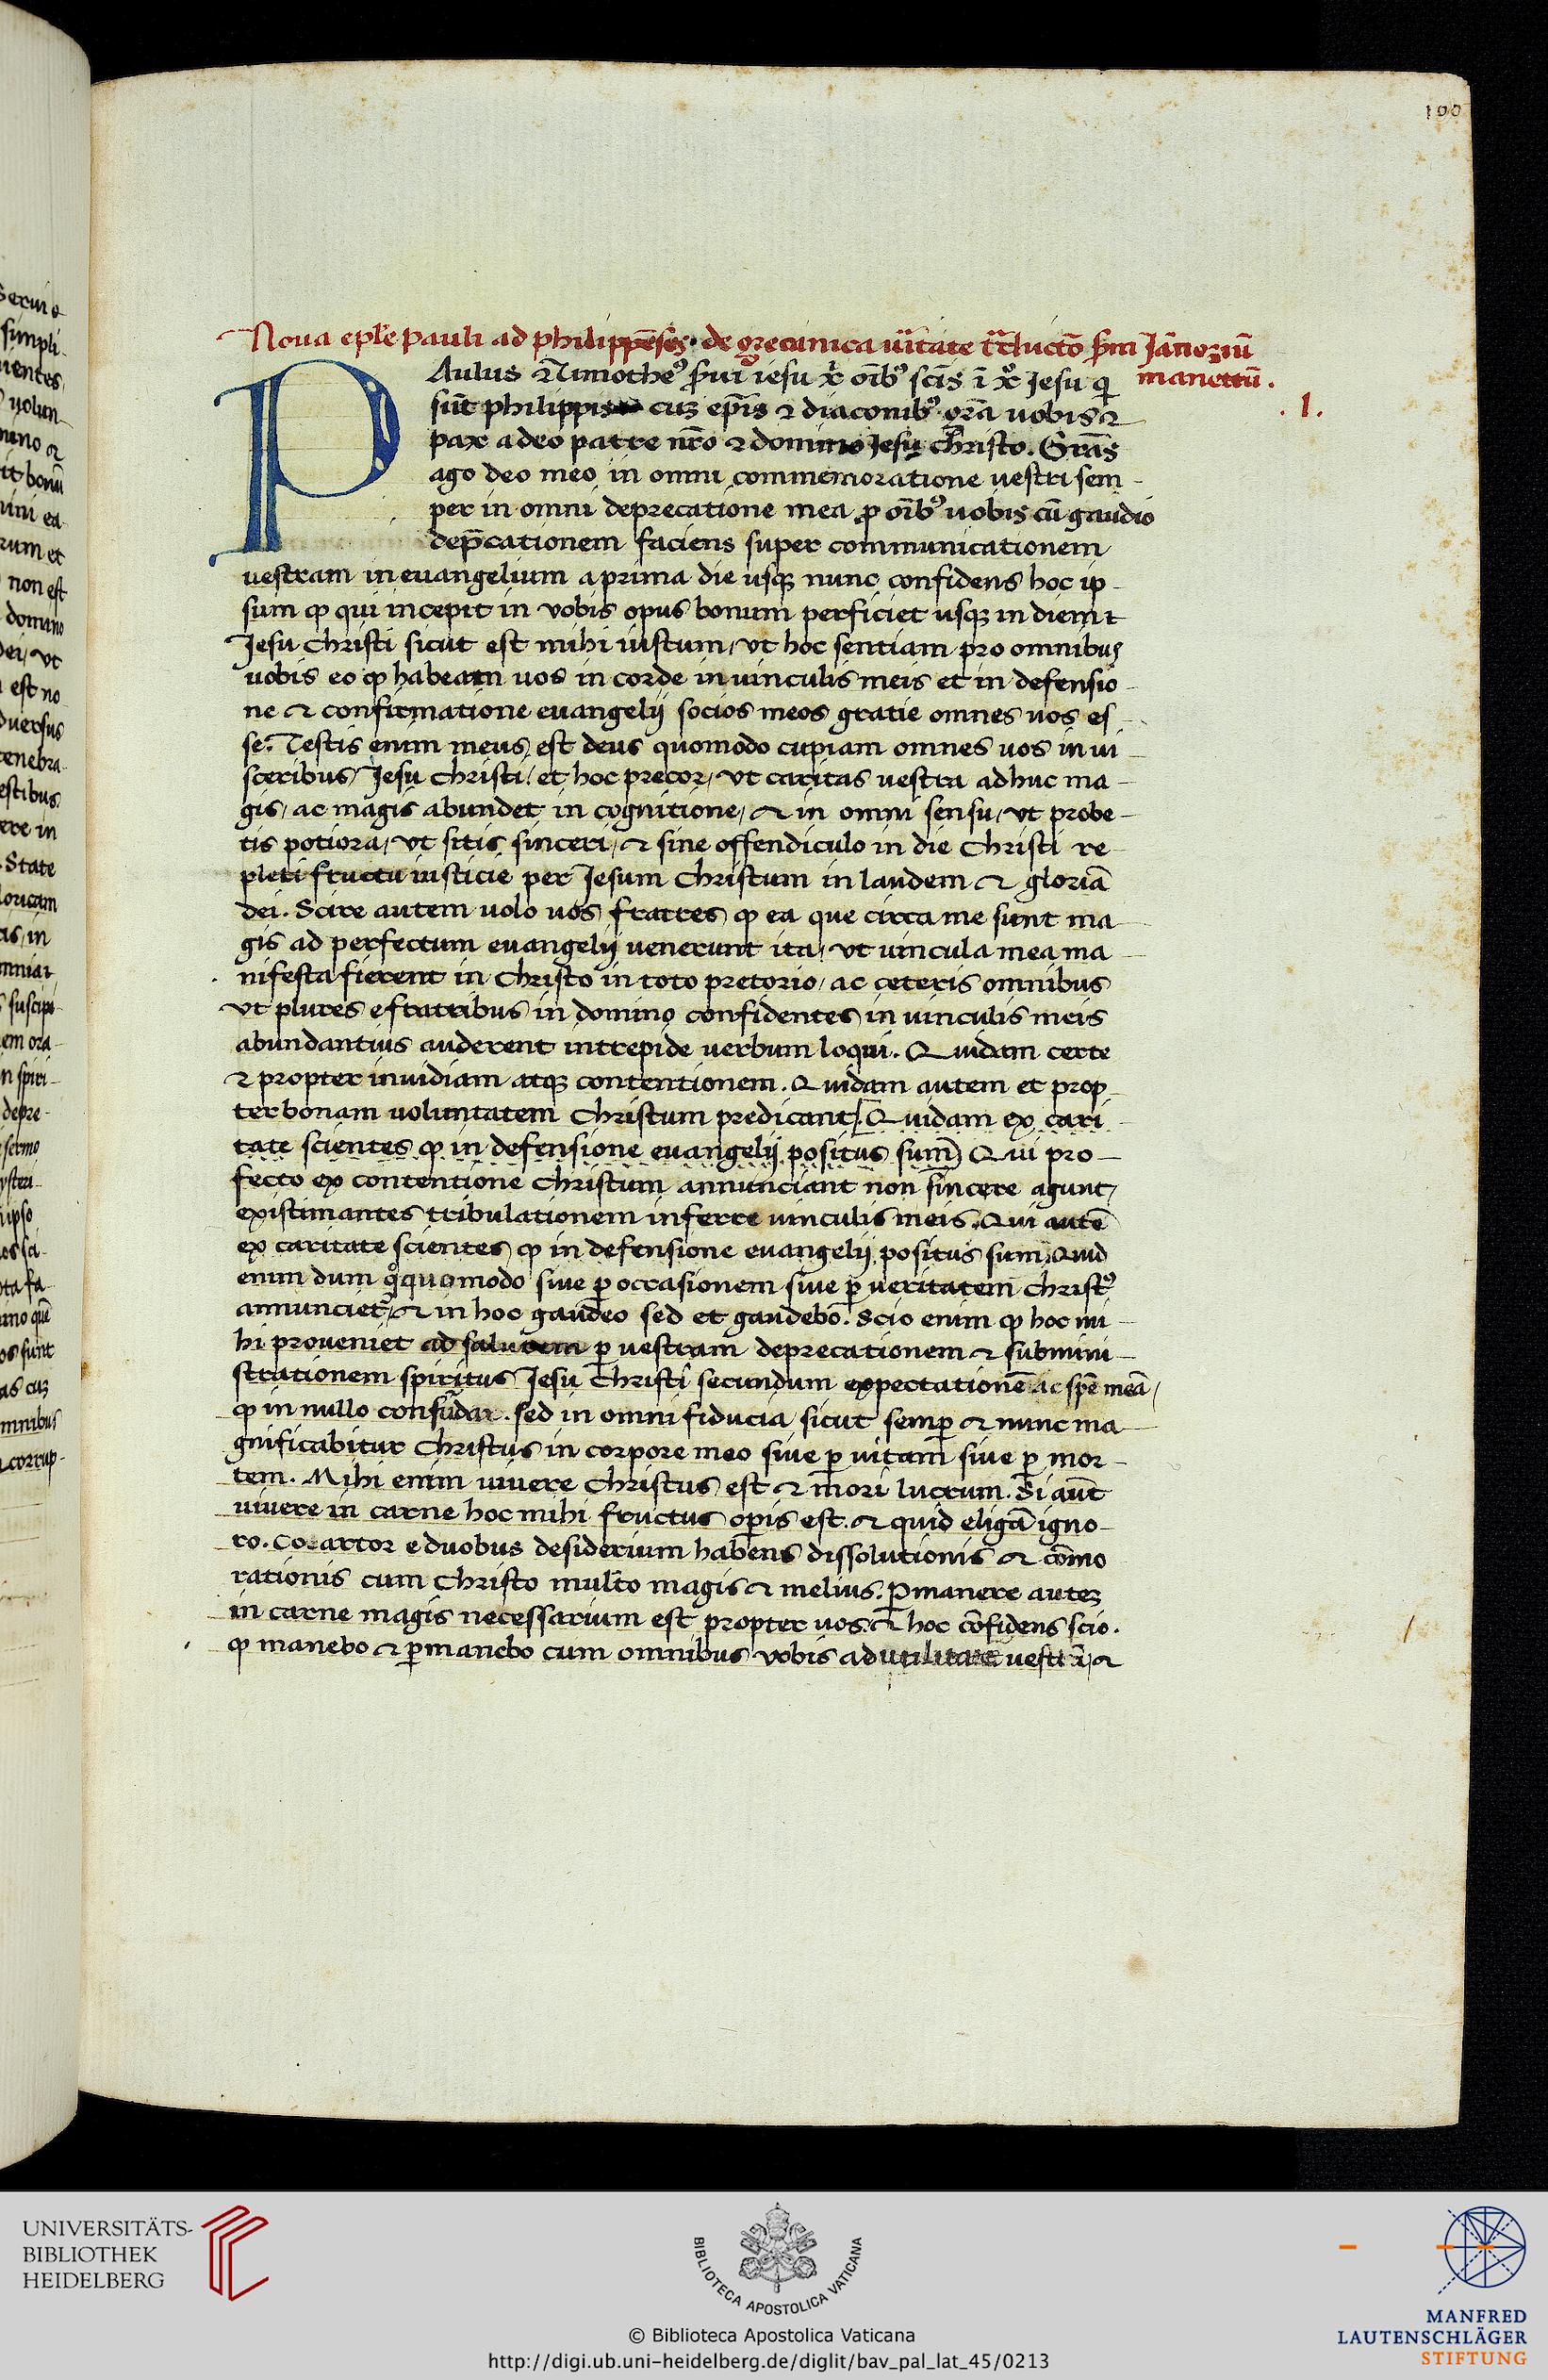 100
Noua eplē pauli ad philippēses. de grecanica
Janozium
manettū.
.1.
PAulus & Timotheꝰ serui iesu xp̄i oībꝰ scīs ī xp̄o Jesu qui
sūt philippis cuz ep̄is & diaconibꝰ. gr̄a uobis &
pax a deo patre nr̄o & domino Jesu Christo. Gr̄as
ago deo meo in omni commemoratione uestri sem-
per in omni deprecatione mea ꝓ oībꝰ uobis cū gaudio
dep̄cationem faciens super communicationem
uestram in euangelium a prima die usqꝫ nunc confidens hoc ip-
sum ꝙ qui incepit in vobis opus bonum perficiet usqꝫ in diem
Jesu Christi sicut est mihi iustum/ vt hoc sentiam pro omnibus
uobis eo ꝙ habeam uos in corde in uinculis meis et in defensio-
ne & confirmatione euangelij socios meos gratie omnes uos es-
se. Testis enim meus est deus quomodo cupiam omnes uos in ui-
sceribus Jesu Christi. et hoc precor/ vt caritas uestra adhuc ma-
gis/ ac magis abundet in cognitione/ & in omni sensu/ vt probe-
tis potiora/ vt sitis sinceri/ & sine offendiculo in die Christi re-
pleti fructu iusticie per Jesum Christum in laudem & gloriā
dei. Scire autem uolo uos fratres ꝙ ea que circa me sunt ma-
gis ad perfectum euangelij uenerunt ita/ vt uincula mea ma-
nifesta fierent in Christo in toto pretorio/ ac ceteris omnibus
vt plures e fratribus in domino confidentes in uinculis meis
abundantius auderent intrepide uerbum loqui. Quidam certe
& propter inuidiam atqꝫ contentionem. Quidam autem et prop-
ter bonam uoluntatem Christum predicant. Quidam ex cari
tate scientes ꝙ in defensione euangelij positus sum) Qui pro-
fecto ex contentione Christum annunciant non sincere agunt/
existimantes tribulationem inferre uinculis meis. Qui autē
ex caritate scientes ꝙ in defensione euangelij positus sum. Quid
enim dum quoquomodo siue ꝑ occasionem siue ꝑ ueritatem Christꝰ
annuncietur/ & in hoc gaudeo sed et gaudebo. Scio enim ꝙ hoc mi-
hi proueniet ad salutem ꝑ uestram deprecationem & submini-
strationem spiritus Jesu Christi secundum expectationē ac spē meā/
ꝙ in nullo confundar. sed in omni fiducia sicut semꝑ & nunc ma-
gnificabitur Christus in corpore meo siue ꝑ uitam siue ꝑ mor-
tem. Mihi enim uiuere Christus est & mori lucrum. Si aut̄
uiuere in carne hoc mihi fructus oꝑis est. & quid eligā igno-
ro. Coartor e duobus desiderium habens dissolutionis & cōmo
rationis cum Christo multo magis & melius. ꝑmanere autez
in carne magis necessarium est propter uos. & hoc cōfidens scio.
ꝙ manebo & ꝑmanebo cum omnibus vobis ad utilitatē uestrā/ &
UNIVERSITÄTS-
BIBLIOTHEK
HEIDELBERG
BIBLIOTECA APOSTOLICA VATICANA
© Biblioteca Apostolica Vaticana
http://digi.ub.uni-heidelberg.de/diglit/bav_pal_lat_45/0213
MANFRED
LAUTENSCHLÄGER
STIFTUNG